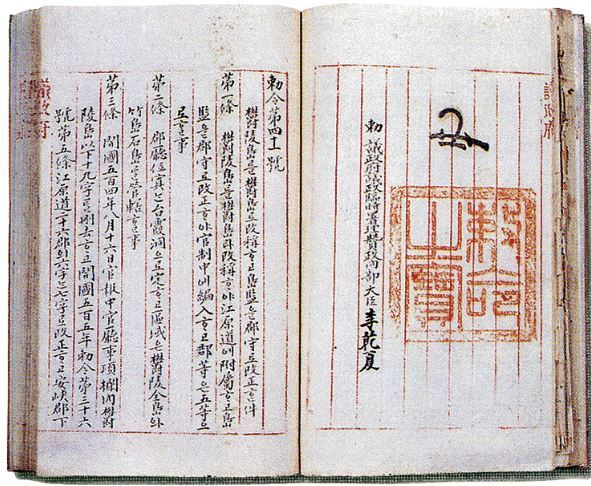 議政府
勅命之寶
勅 議政府議政臨時署理贊政內部大臣 李乾夏
勅令第四十一號
欝陵島로改稱ᄒᆞ고島監을郡守로改正ᄒᆞᆫ件
第一條 欝陵島를欝島라改稱ᄒᆞ야江原道에附屬ᄒᆞ고島
監을郡守로改正ᄒᆞ야官制中에編入ᄒᆞ고郡等은五等으
로ᄒᆞᆯ事
第二條 郡廳位寘ᄂᆞᆫ台霞洞으로定ᄒᆞ고區域은欝陵全島와
竹島石島ᄅᆞᆯ管轄ᄒᆞᆯ事
第三條 開國五百四年八月十六日官報中官廳事項欄內欝
陵島以下十九字를刪去ᄒᆞ고開國五百五年勅令第三十六
號第五條江原道二十六郡의六字ᄂᆞᆫ七字로改正ᄒᆞ고安峽郡下
議政府